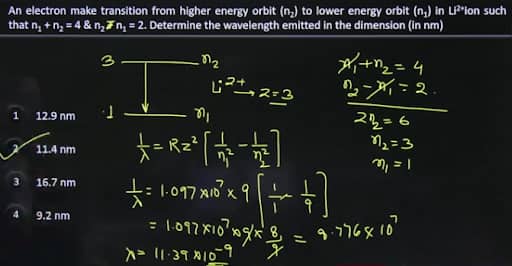 An electron make transition from higher energy orbit (n₂) to lower energy orbit (n₁) in Li²⁺ion such
that n₁ + n₂ = 4 & n₂ - n₁ = 2. Determine the wavelength emitted in the dimension (in nm)
3 n₂
Li²⁺, z=3
1 n₁
n₁+n₂ = 4
n₂-n₁ = 2.
2n₂ = 6
n₂=3
n₁ = 1
1 12.9 nm
2 11.4 nm
3 16.7 nm
4 9.2 nm
1/λ = Rz² [1/n₁² - 1/n₂²]
1/λ = 1.097×10⁷ × 9 [1/1 - 1/9]
= 1.097×10⁷ × 9 × 8/9 = 8.776×10⁷
λ = 11.39×10⁻⁹